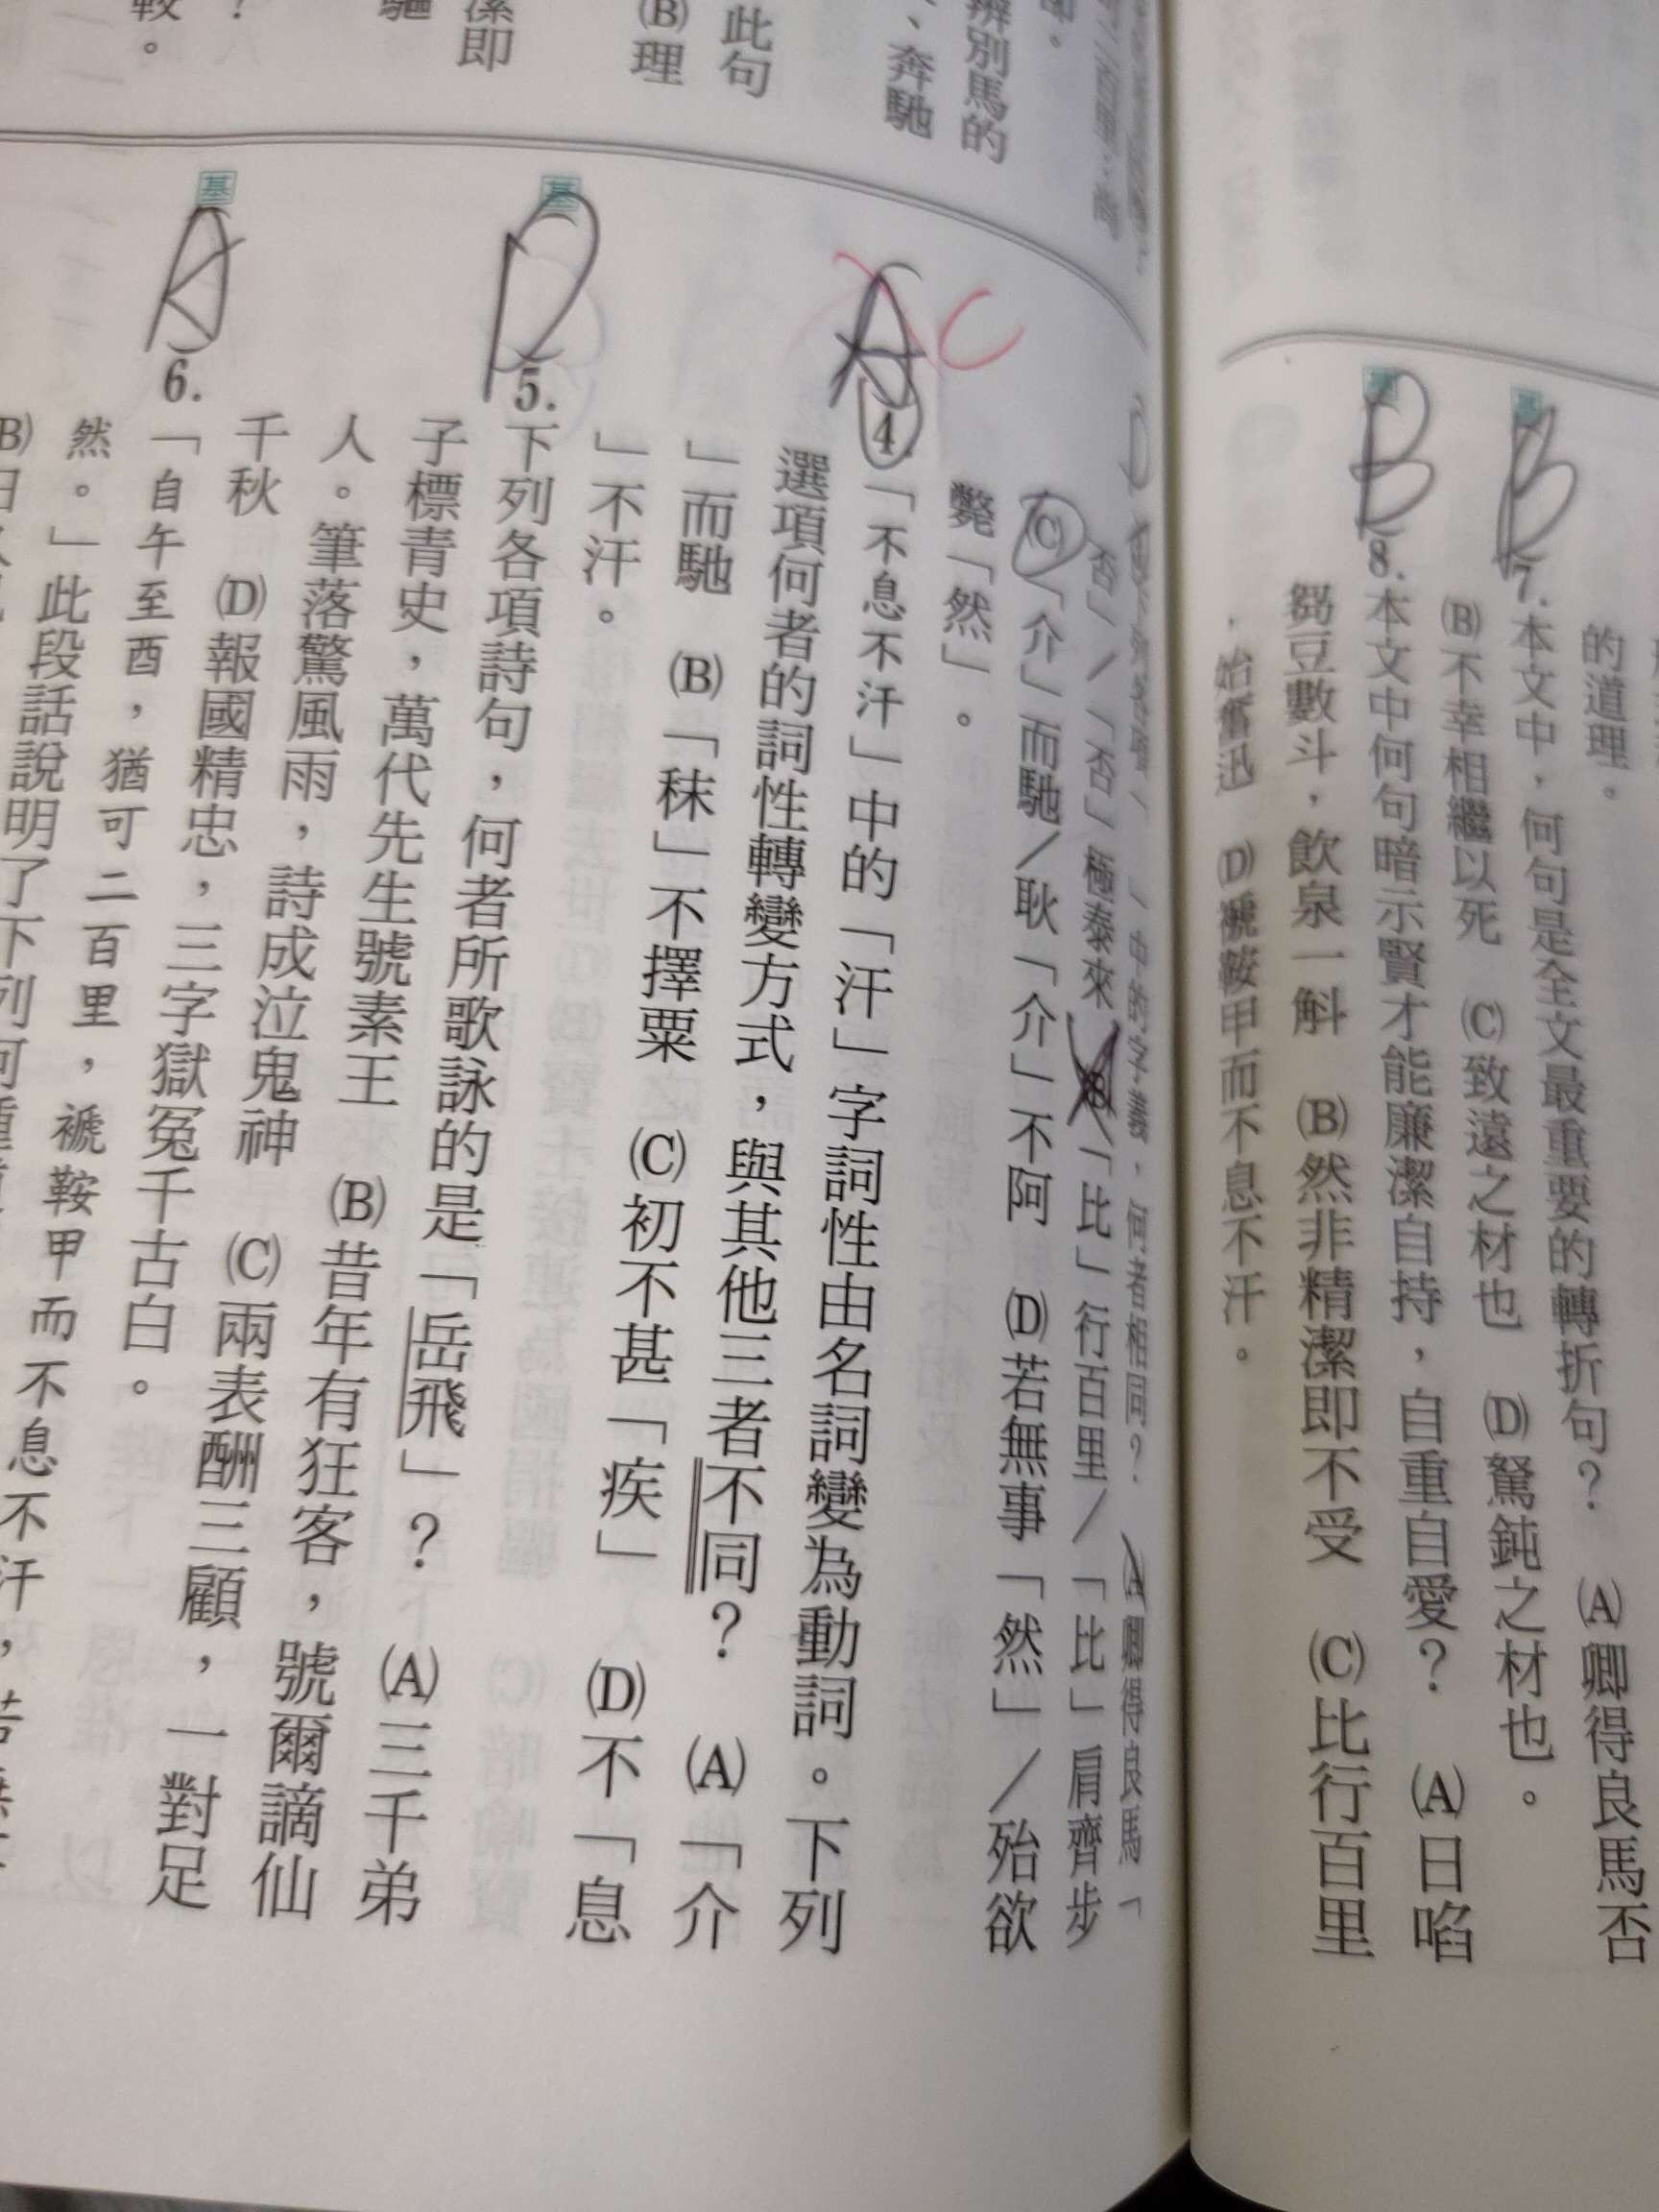 的道理。
7.本文中，何句是全文最重要的轉折句？ (A)卿得良馬否
(B)不幸相繼以死 (C)致遠之材也 (D)駑鈍之材也。
8.本文中何句暗示賢才能廉潔自持，自重自愛？ (A)日啗
芻豆數斗，飲泉一斛 (B)然非精潔即不受 (C)比行百里
，始奮迅 (D)褫鞍甲而不息不汗。
B
B
辨別馬的
、奔馳
此句
(B)理
潔即
馳
較。
中的字義，何者相同？ (A)卿得良馬「
否」／「否」極泰來 (B)「比」行百里／「比」肩齊步
(C)「介」而馳／耿「介」不阿 (D)若無事「然」／殆欲
斃「然」。
基
A
C
4.「不息不汗」中的「汗」字詞性由名詞變為動詞。下列
選項何者的詞性轉變方式，與其他三者不同？ (A)「介
」而馳 (B)「秣」不擇粟 (C)初不甚「疾」 (D)不「息
」不汗。
D
5.下列各項詩句，何者所歌詠的是「岳飛」？ (A)三千弟
子標青史，萬代先生號素王 (B)昔年有狂客，號爾謫仙
人。筆落驚風雨，詩成泣鬼神 (C)兩表酬三顧，一對足
千秋 (D)報國精忠，三字獄冤千古白。
A
6.「自午至酉，猶可二百里，褫鞍甲而不息不汗，若無事
然。」此段話說明了下列何種